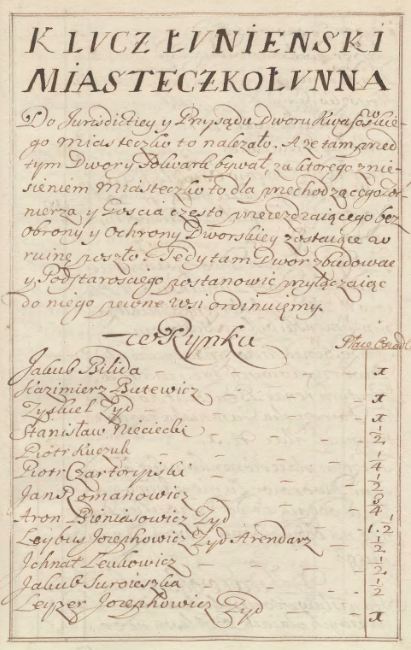 KLUCZ ŁUNIENSKI
MIASTECZKO ŁUNNA
Do Jurisdictiey y Prysądu Dworu Kwasowskie-
go miasteczko to nalezało. A ze tam przed
tym Dwory Folwark bywał, za ktorego znie-
sieniem miasteczko to dla przechodzącego żoł-
nierza, y Goscia często przeiezdzaiącego bez
obrony y Ochrony Dworskiey zostaiące w
ruinę poszło. Tedy tam Dwor zbudować
y Podstarosciego postanowić przyłączaiąc
do niego pewne wsi ordinuiemy.
w Rynku
Place
Jakub Bilida x
Kazimierz Butewicz x
Zyskiel Zyd x
Stanisław Nieciecki 1/2
Piotr Kuczuk
Piotr Czartoryiski 1/4
Jan Romanowicz
Aron Pieniasowicz Zyd
Leybus Jozephowicz Zyd Arendarz 1.1/2
Jchnat Lenkowicz 1/2
Jakub Suroieszka 1/2
Leyzer Jozephowicz Zyd x